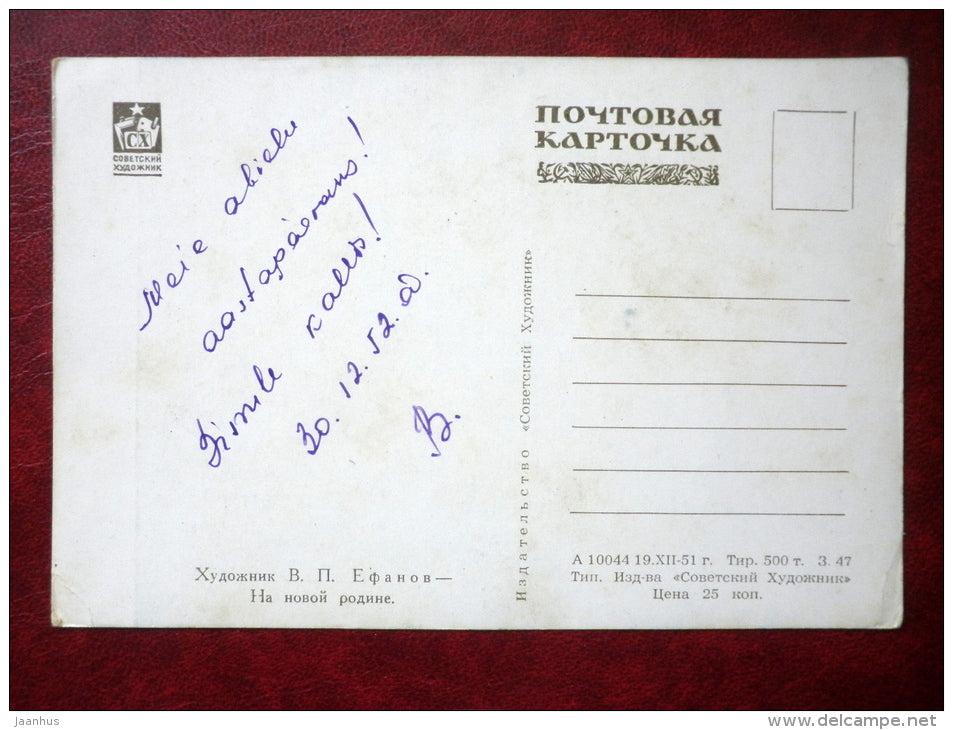 СХ
СОВЕТСКИЙ
ХУДОЖНИК
Meie abielu
aastapäevans!
kallis!
30. 12. 52. a.
B.
Художник В. П. Ефанов—
На новой родине.
Издательство «Советский Художник»
ПОЧТОВАЯ
КАРТОЧКА
А 10044 19.XII-51 г. Тир. 500 т. З. 47
Тип. Изд-ва «Советский Художник»
Цена 25 коп.
jaanhus
www.delcampe.net